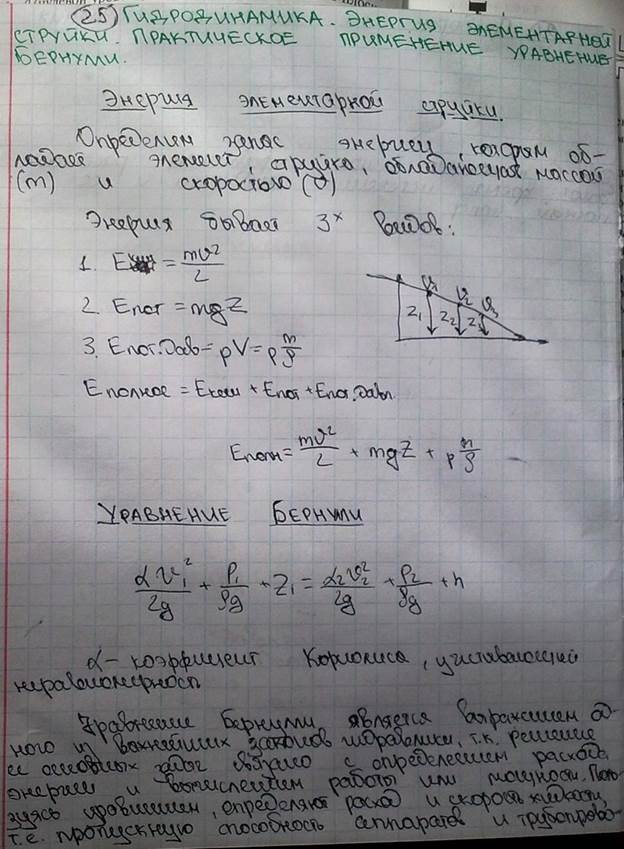 (25) ГИДРОДИНАМИКА. ЭНЕРГИЯ ЭЛЕМЕНТАРНОЙ
СТРУЙКИ. ПРАКТИЧЕСКОЕ ПРИМЕНЕНИЕ УРАВНЕНИЕ
БЕРНУЛИ.
Энергия элементарной струйки.
Определим запас энергии, которым об-
ладает элемент. струйка, обладающая массой
(m) и скоростью (υ)
Энергия бывает 3х видов:
1. Eкин = mυ²/2
2. Eпот = mgZ
3. Eпот.давл = pV = p m/ρ
υ1 υ2 υ3
Z1 Z2 Z3
Eполное = Eкин + Eпот + Eпот.давл
Eполн = mυ²/2 + mgZ + p m/ρ
УРАВНЕНИЕ БЕРНУЛИ
αυ1²/2g + p1/ρg + Z1 = α2υ2²/2g + p2/ρg + h
α – коэффициент Кориолиса, учитывающий
неравномерность
Уравнение Бернули является выражением од-
ного из важнейших законов гидравлики, т.к. решение
ее основных задач связано с определением расхода
энергии и вычислением работы или мощности. Поль-
зуясь уравнением, определяют расход и скорость жидкости,
т.е. пропускную способность аппаратов и трубопрово-